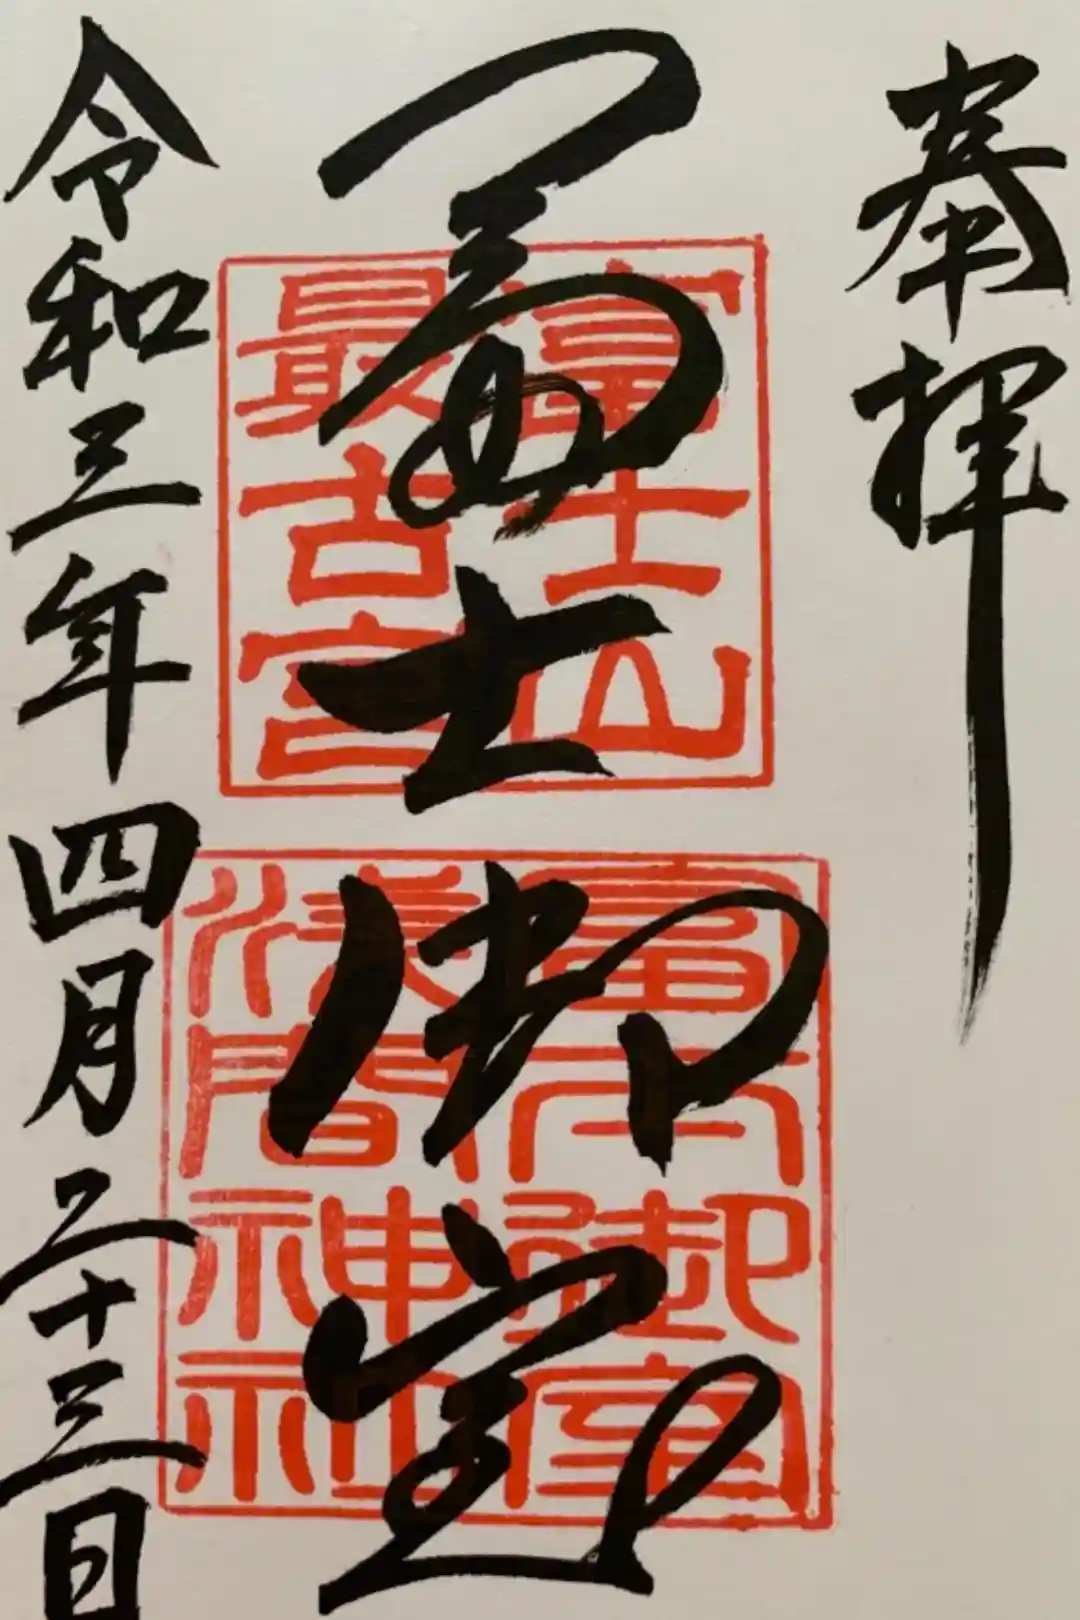 奉拝
冨士御室
令和三年四月二十三日
富士山
最古宮
冨士御室
淺間神社